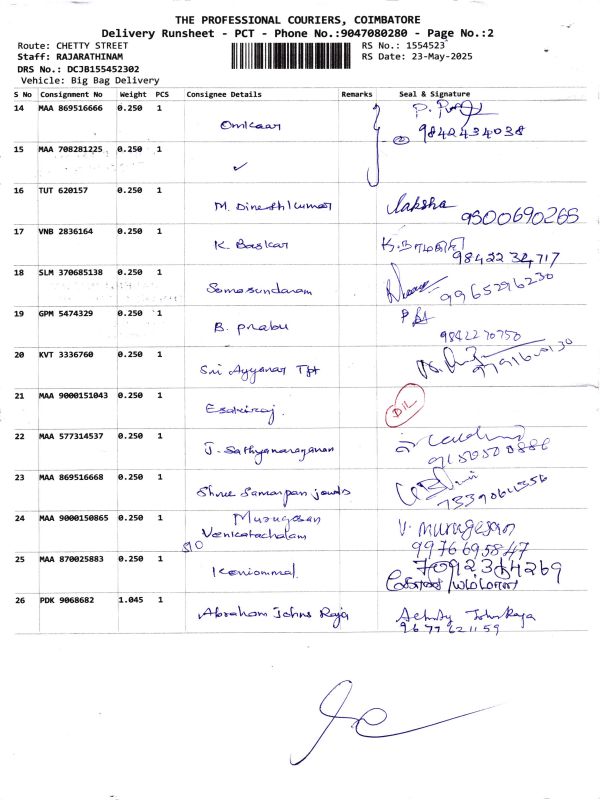 THE PROFESSIONAL COURIERS, COIMBATORE
Delivery Runsheet - PCT - Phone No.:9047080280 - Page No.:2
Route: CHETTY STREET
RS No.: 1554523
Staff: RAJARATHINAM
RS Date: 23-May-2025
DRS No.: DCJB155452302
Vehicle: Big Bag Delivery
S No Consignment No Weight PCS Consignee Details Remarks Seal & Signature
14 MAA 869516666 0.250 1 Omkaar
9842434038
15 MAA 708281225 0.250 1 ✓
16 TUT 620157 0.250 1 M. Dineshkumar Laksha
9500690265
17 VNB 2836164 0.250 1 K. Baskar
18 SLM 370685138 0.250 1 Somasundaram
9965296230
19 GPM 5474329 0.250 1 B. prabu
9842270750
20 KVT 3336760 0.250 1 Sri Ayyanar Tpt
21 MAA 9000151043 0.250 1 Esakiraj. DIL
22 MAA 577314537 0.250 1 J. Sathyanarayanan
23 MAA 869516668 0.250 1 Shree Samarpan jewels
24 MAA 9000150865 0.250 1 Murugesan
S/O Venkatachalam
V. murugesan
9976695847
25 MAA 870025883 0.250 1 Kaniammal
26 PDK 9068682 1.045 1 Abraham Johns Raja
9677621159